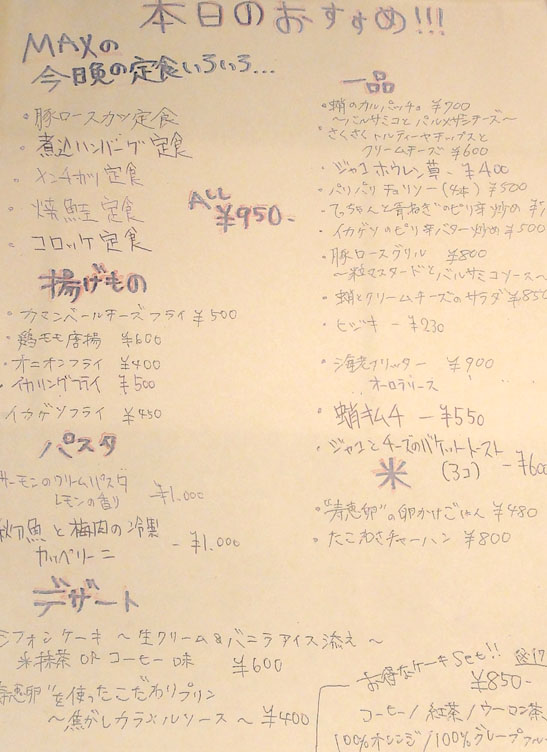 本日のおすすめ!!!
MAXの
今日晩の定食いろいろ...
・豚ロースカツ定食
・煮込ハンバーグ定食
・メンチカツ定食
・焼鮭定食
・コロッケ定食
ALL
¥950-
揚げもの
・カマンベールチーズフライ ¥500
・鶏モモ唐揚 ¥600
・オニオンフライ ¥400
・イカリングフライ ¥500
イカゲソフライ ¥450
パスタ
サーモンのクリームパスタ
レモンの香り ¥1.000
秋刀魚と梅肉の冷製
カッペリーニ -¥1.000
デザート
シフォンケーキ 〜生クリーム&バニラアイス添え〜
※抹茶 OR コーヒー味 ¥600
寿恵卵"を使ったこだわりプリン
〜焦がしカラメルソース〜 ¥400
一品
・蛸のカルパッチョ ¥700
〜バルサミコとパルメザンチーズ〜
・さくさくトルティーヤチップスと
クリームチーズ ¥600
・ジャコホウレン草 - ¥400
・パリパリチョリソー(4本) ¥500
・てっちゃんと青ねぎのピリ辛炒め
・イカゲソのピリ辛バター炒め ¥500
・豚ロースグリル ¥800
〜粒マスタードとバルサミコソース〜
・蛸とクリームチーズのサラダ ¥850
・ヒジキ - ¥230
・海老フリッター ¥900
オーロラソース
・蛸キムチ - ¥550
・ジャコとチーズのバケットトースト
(3コ) -¥600
米
・"寿恵卵"の卵かけごはん ¥480
・たこわさチャーハン ¥800
お得なケーキSet!!
¥850-
コーヒー/紅茶/ウーロン茶
100%オレンジ/100%グレープフルー